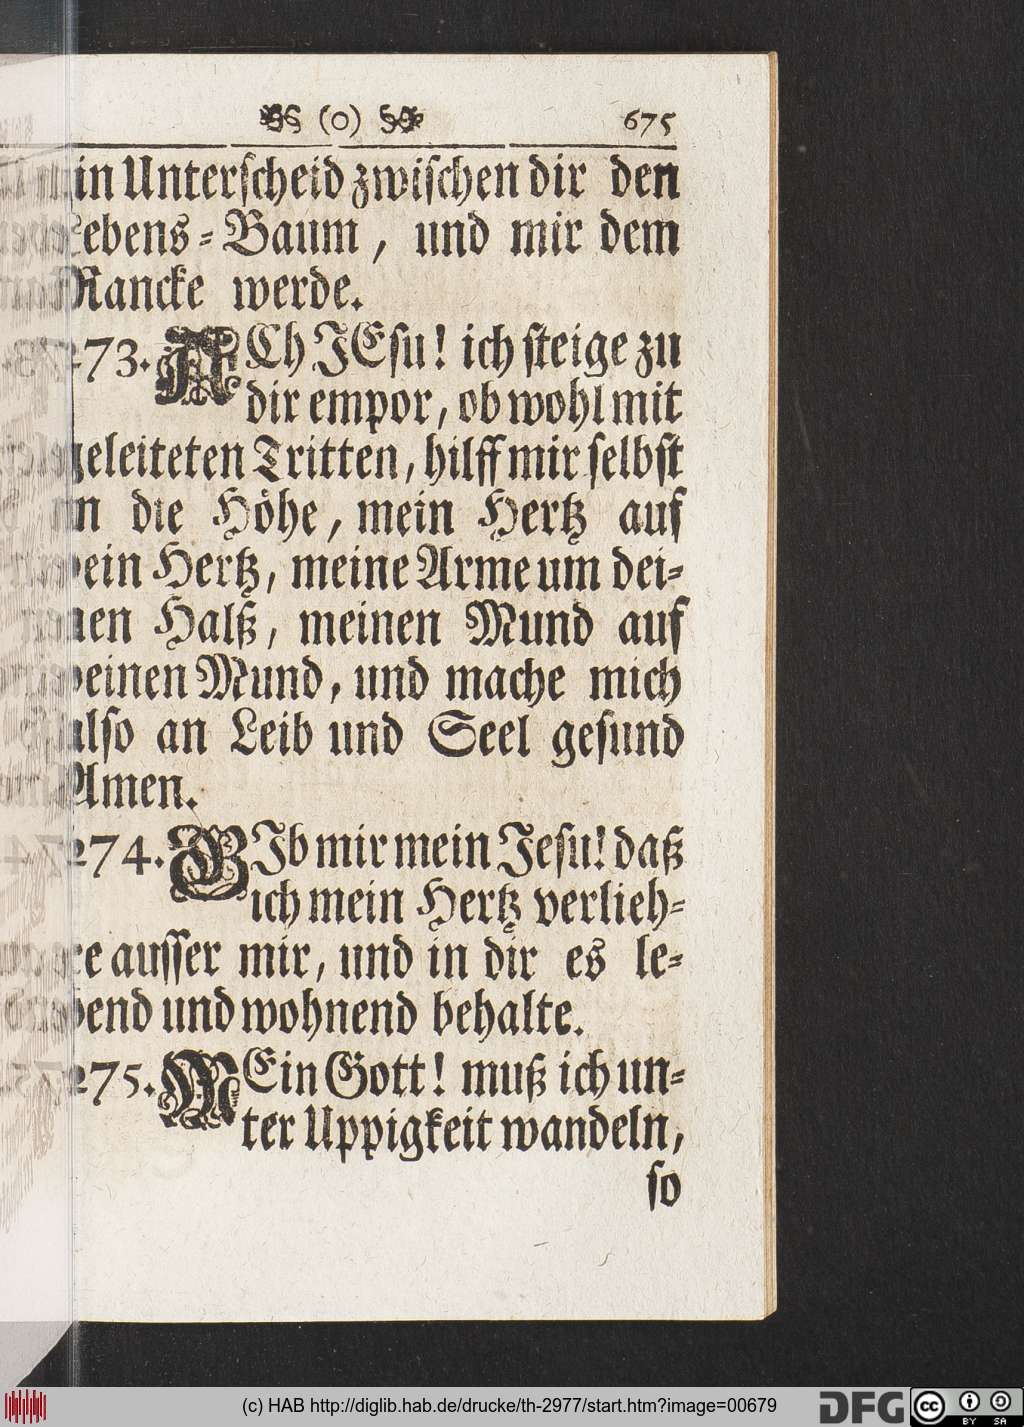 (o) 675
in Unterscheid zwischen dir den
Lebens-Baum, und mir dem
Rancke werde.
273. ACh JEsu! ich steige zu
dir empor, ob wohl mit
geleiteten Tritten, hilff mir selbst
in die Höhe, mein Hertz auf
dein Hertz, meine Arme um dei-
nen Halß, meinen Mund auf
deinen Mund, und mache mich
also an Leib und Seel gesund
Amen.
274. GJb mir mein Jesu! daß
ich mein Hertz verlieh-
re ausser mir, und in dir es le-
bend und wohnend behalte.
275. MEin Gott! muß ich un-
ter Uppigkeit wandeln,
so
(c) HAB http://diglib.hab.de/drucke/th-2977/start.htm?image=00679
DFG
cc BY SA